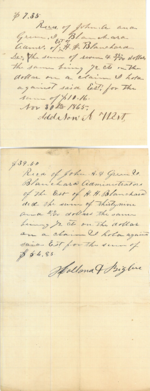 $7.53
Recd of John &
Green D. Blanchard
of H. H. Blanchard
the sum of seven & 53/100 dollars
the same being 72 cts on the
dollar on a claim I have
against said Est. for the
sum of $10.46
Nov 30th 1865
Addison A West
$39.20
Recd of John & Green D
Blanchard Administrators
of the Est of H. H. Blanchard
decd the sum of thirty nine
and 20/100 dollars the same
being 72 cts on the dollar
on a claim I hold against
said Est for the sum
of $
Holland &